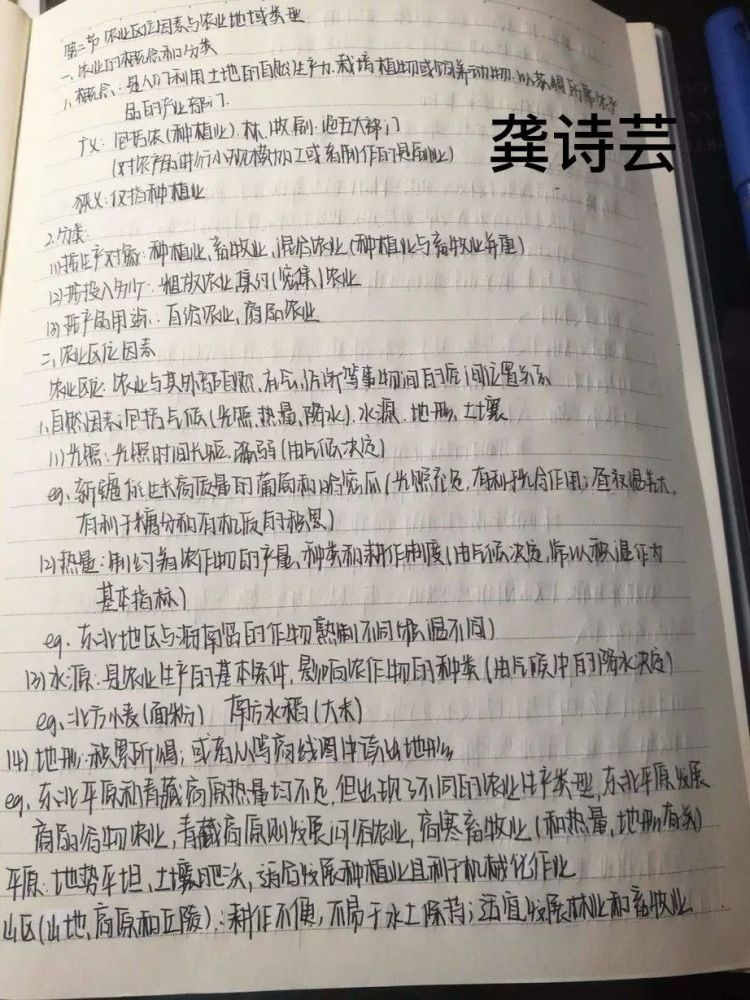 第二节 农业区位因素与农业地域类型
一、农业的概念和分类
1、概念：是人们利用土地的自然生产力,栽培植物或饲养动物,以获得
品的产业部门.
龚诗芸
广义：包括农(种植业).林.牧.副.渔五大部门
(对农产品进行小规模加工或者制作的是副业)
狭义：仅指种植业
2.分类：
(1)按生产对象：种植业,畜牧业,混合农业(种植业与畜牧业并重)
(2)按投入多少：粗放农业,集约(密集)农业
(3)按产品用途：自给农业,商品农业
二、农业区位因素
农业区位：农业与其外部自然、社会、经济等事物间的空间位置关系
1、自然因素：包括气候(光照,热量,降水).水源.地形.土壤
(1)光照：光照时间长短.强弱(由气候决定)
eg、新疆能产高质量的葡萄和哈密瓜(光照充足,有利于光合作用；昼夜温差大,
有利于糖分和有机质的积累)
(2)热量：制约着农作物的产量、种类和耕作制度(由气候决定,常以积温作为
基本指标)
eg、东北地区与海南岛的作物熟制不同(积温不同)
(3)水源：是农业生产的基本条件,影响农作物的种类(由气候中的降水决定)
eg、北方小麦(面粉) 南方水稻(大米)
(4)地形：积累所得；或者从等高线图中读出地形
eg、东北平原和青藏高原热量均不足,但出现了不同的农业生产类型,东北平原发展
商品谷物农业,青藏高原则发展河谷农业,高寒畜牧业(和热量,地形有关)
平原：地势平坦、土壤肥沃,适合发展种植业且利于机械化作业
山区(山地,高原和丘陵)：耕作不便,不易于水土保持；适宜发展林业和畜牧业